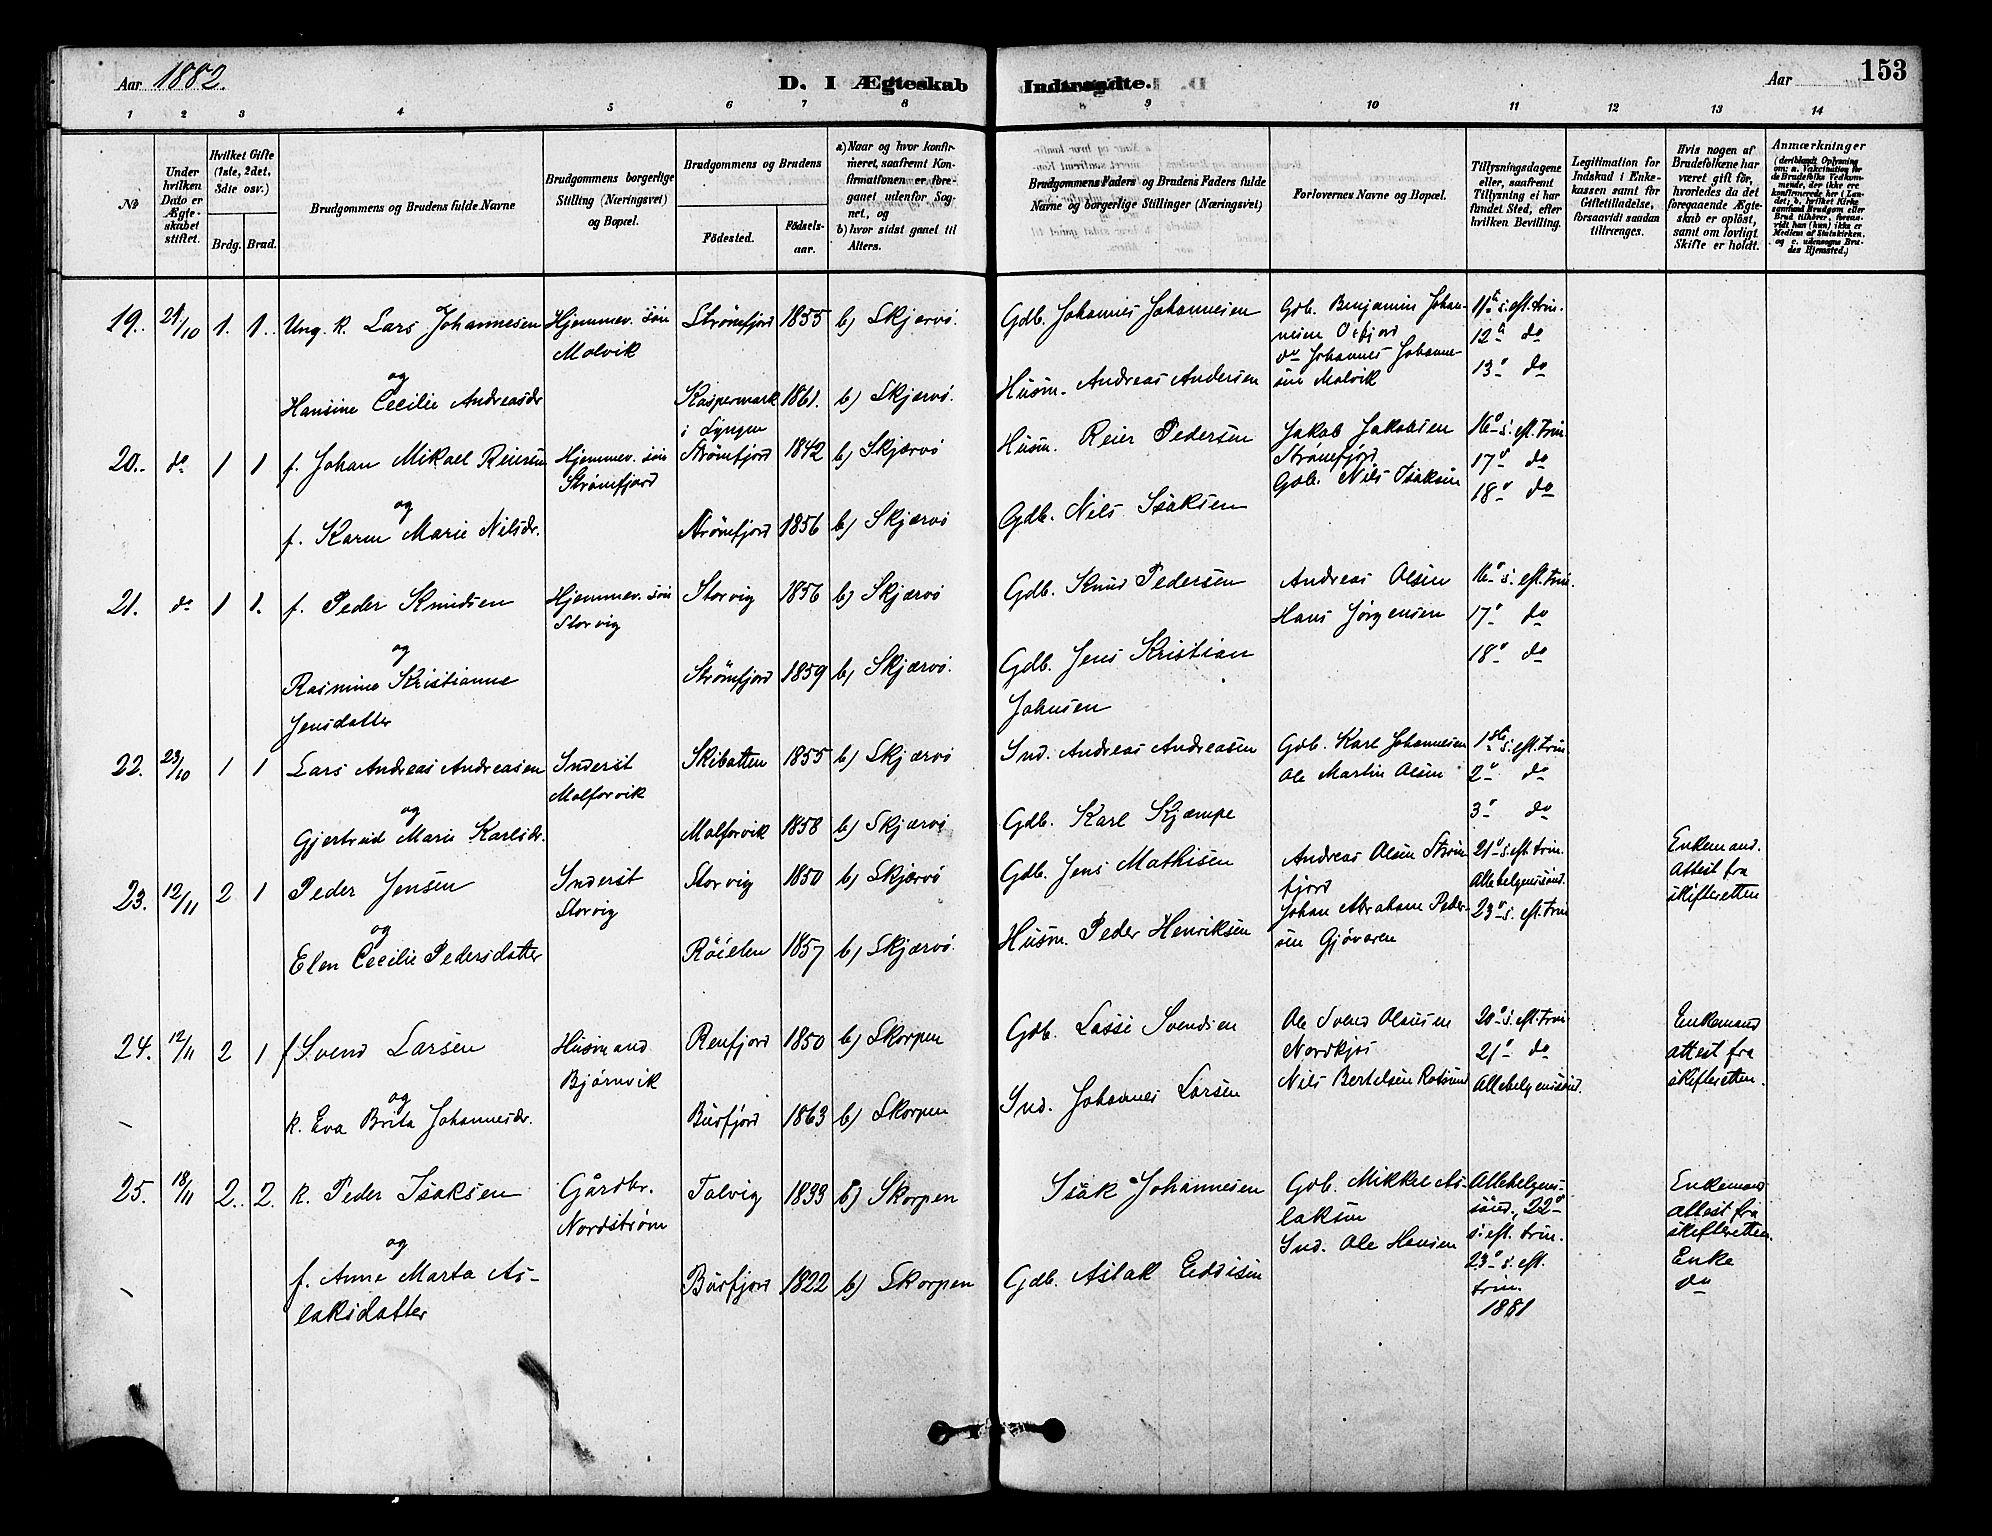 Aar 1882.
D. I Ægteskab Indtraadte.
Aar
153
1 2 3 4 5 6 7 8 9 10 11 12 13 14
No
Under hvilken Dato er Ægteskabet stiftet.
Hvilket Gifte (1ste, 2det, 3die osv.)
Brdg. Brud.
Brudgommens og Brudens fulde Navne
Brudgommens borgerlige Stilling (Næringsvei) og Bopæl.
Brudgommens og Brudens
Födested.
Födselsaar.
a) Naar og hvor konfirmeret, saafremt Konfirmationen er foregaaet udenfor Sognet, og
b) hvor sidst gaaet til Alters.
Brudgommens Faders og Brudens Faders fulde Navne og borgerlige Stillinger (Næringsvei)
Forlovernes Navne og Bopæl.
Tillysningsdagene eller, saafremt Tillysning ei har fundet Sted, efter hvilken Bevilling.
Legitimation for Indskud i Enkekassen samt for Giftetilladelse, forsaavidt saadan tiltrænges.
Hvis nogen af Brudefolkene har været gift för, hvorledes da det foregaaende Ægteskab er oplöst, samt om lovligt Skifte er holdt.
Anmærkninger
19. 21/10 1. 1. Ung. k. Lars Johannesen Hjemmev. sön Strömfjord 1855 b) Skjærvö. Gdb. Johannes Johannesen Gdb. Benjamin Johan- 11te s. eft. trin.
Molvik nesen 12te do
do Johannes Johanne- 13de do
og sen Molvik
Hansine Cecilie Andreasdr Kaspermark 1861. b) Skjærvö. Husm. Andreas Andersen
i Lyngen
20. do 1 1 f. Johan Mikael Reiersen Hjemmev. sön Strömfjord 1842 b) Skjærvö Husm. Reier Pedersen Jakob Jakobsen 16de s. eft. trin.
Strömfjord Strömfjord 17de do
og Gdb. Nils Isaksen 18de do
f. Karen Marie Nilsdr. Strömfjord 1856 b) Skjærvö Gdb. Nils Isaksen
21. do 1 1. f. Peder Knudsen Hjemmev. sön Storvig 1856 b) Skjærvö Gdb. Knud Pedersen Andreas Olsen 16de s. eft. trin.
Storvig Hans Jörgensen 17de do
og 18de do
Rasmine Kristianne Strömfjord 1859 b) Skjærvö. Gdb. Jens Kristian
Jensdatter Johnsen
22. 23/10 1 1 Lars Andreas Andreasen Inderst Skibotten 1855 b) Skjærvö Ind. Andreas Andreasen Gdb. Karl Johannesen 1ste s. eft. trin.
Molforvik Ole Martin Olsen 2den do
og 3de do
Gjertrud Marie Karlsdr. Molforvik 1858 b) Skjærvö Gdb. Karl Kjæmpe
23. 12/11 2 1 Peder Jensen Inderst Storvig 1850 b) Skjærvö Gdb. Jens Mathisen Andreas Olsen Ström- 21de s. eft. trin. Enkemand.
Storvig fjord Allehelgenssönd. Attest fra
og Johan Abraham Peder- 23de s. eft. trin skifteretten
Elen Cecilie Pedersdatter Röielen 1857 b) Skjærvö. Husm. Peder Henriksen sen Gjövaren
24. 12/11 2 1 f. Svend Larsen Husmand Renfjord 1850 b) Skorpen Gdb. Lasse Svendsen Ole Svend Olausen 20de s. eft. trin Enkemand
Björnvik 21de do attest fra
og Nils Bertelsen Rotsund Allehelgenssönd. skifteretten.
k. Eva Brita Johannesdr. Burfjord 1863 b) Skorpen Ind. Johannes Larsen
25. 18/11 2. 2. k. Peder Isaksen Gårdbr. Talvig 1833 b) Skorpen Isak Johannesen Gdb. Mikkel As- Allehelgens- Enkemand
Nordström laksen sönd., 22de attest fra
og Ind. Ole Hansen s. eft. trin. skifteretten.
f. Anne Marta As- Burfjord 1822 b) Skorpen Gdb. Aslak 23de s. eft. Enke
laksdatter trin. do
1881